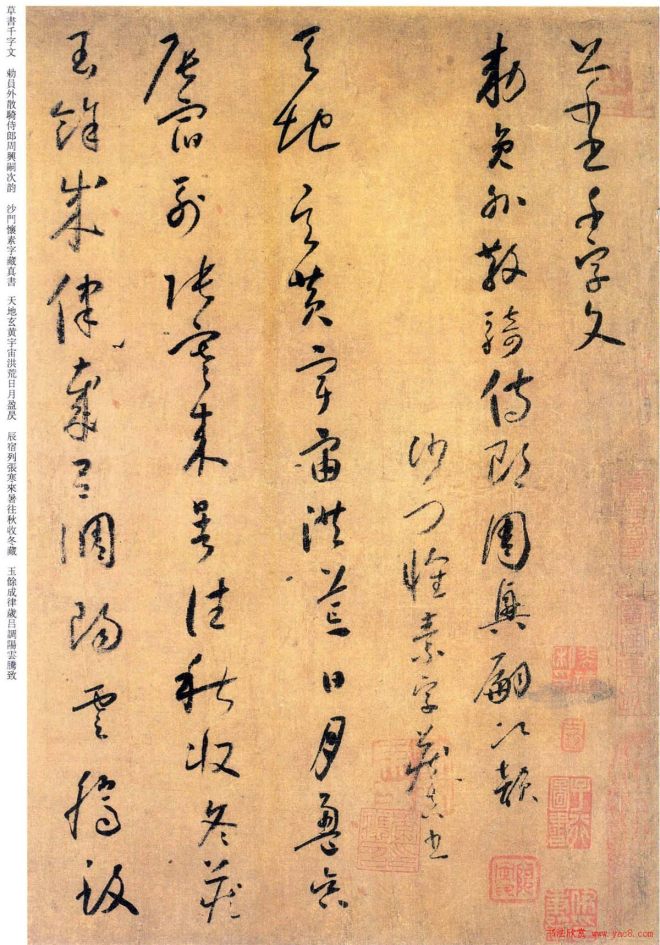 草書千字文
勅員外散騎侍郎周興嗣次韻
沙門懷素字藏真書
天地玄黃宇宙洪荒日月盈昃
辰宿列張寒來暑往秋收冬藏
玉餘成律歲呂調陽雲騰致
草書千字文 勅員外散騎侍郎周興嗣次韵 沙門懷素字藏真書 天地玄黄宇宙洪荒日月盈昃 辰宿列張寒來暑往秋收冬藏 玉餘成律歲呂調陽雲騰致
书法欣赏 www.yac8.com